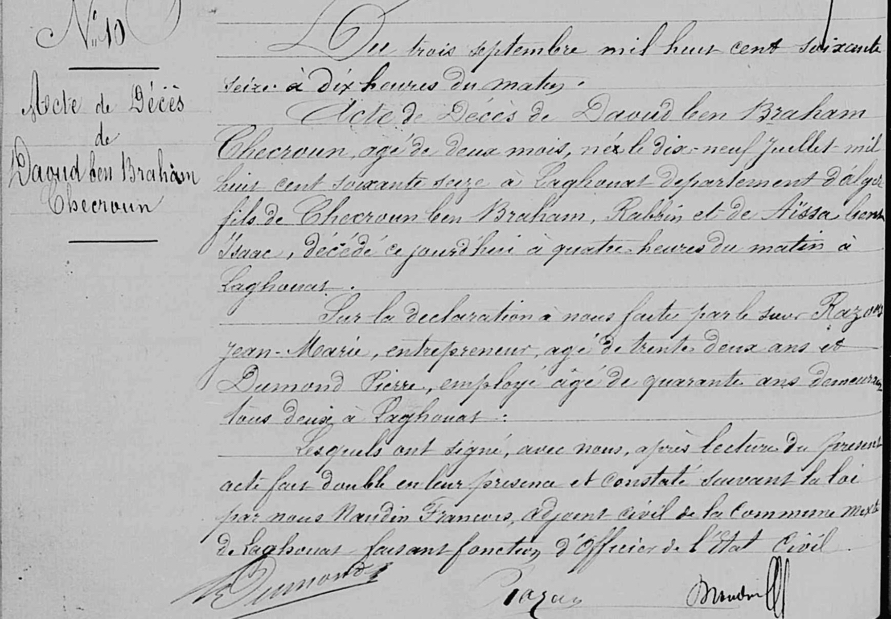 N° 10
Acte de Décès
de
Daoud ben Braham
Checroun
Du trois septembre mil huit cent soixante
seize à dix heures du matin.
Acte de Décès de Daoud ben Braham
Checroun, agé de deux mois, né le dix-neuf Juillet mil
huit cent soixante seize à Laghouat departement d'alger
fils de Checroun ben Braham, Rabbin et de Aïssa bent
Isaac, décédé ce jourd'hui à quatre heures du matin à
Laghouat.
Sur la déclaration à nous faite par le sieur
Jean-Marie, entrepreneur, agé de trente deux ans et
Dumond Pierre, employé âgé de quarante ans demeurant
tous deux à Laghouat.
Lesquels ont signé, avec nous, après lecture du présent
acte fait double en leur présence et constaté suivant la loi
par nous Naudin Francois, adjoint civil de la Commune Mixte
de Laghouat faisant fonction d'Officier de l'Etat Civil.
Dumond